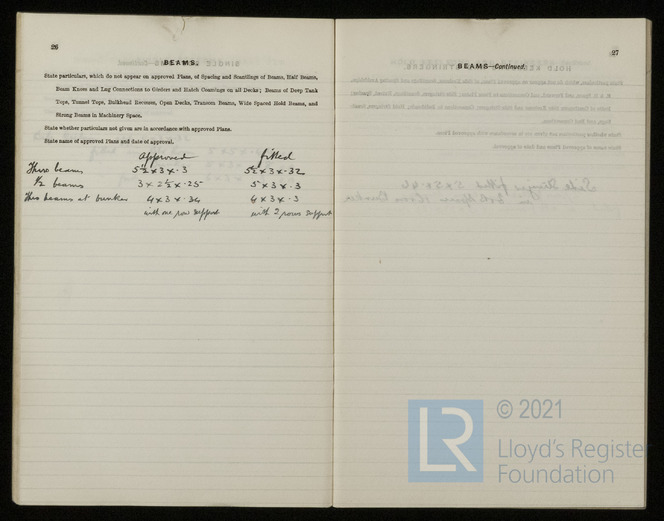 26
BEAMS.
State particulars, which do not appear on approved Plans, of Spacing and Scantlings of Beams, Half Beams,
Beam Knees and Lug Connections to Girders and Hatch Coamings on all Decks; Beams of Deep Tank
Tops, Tunnel Tops, Bulkhead Recesses, Open Decks, Transom Beams, Wide Spaced Hold Beams, and
Strong Beams in Machinery Space.
State whether particulars not given are in accordance with approved Plans.
State name of approved Plans and date of approval.
approved fitted
Thro beams 5½ × 3 × ·3 5½ × 3 × ·32
½ beams 3 × 2½ × ·25 5 × 3 × ·3
Thro beams at bunker 4 × 3 × ·34 6 × 3 × ·3
with one row support with 2 rows support
27
BEAMS—Continued.
LR
© 2021
Lloyd's Register
Foundation